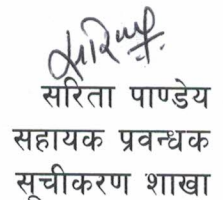 सरिता पाण्डेय
सहायक प्रवन्धक
सूचीकरण शाखा